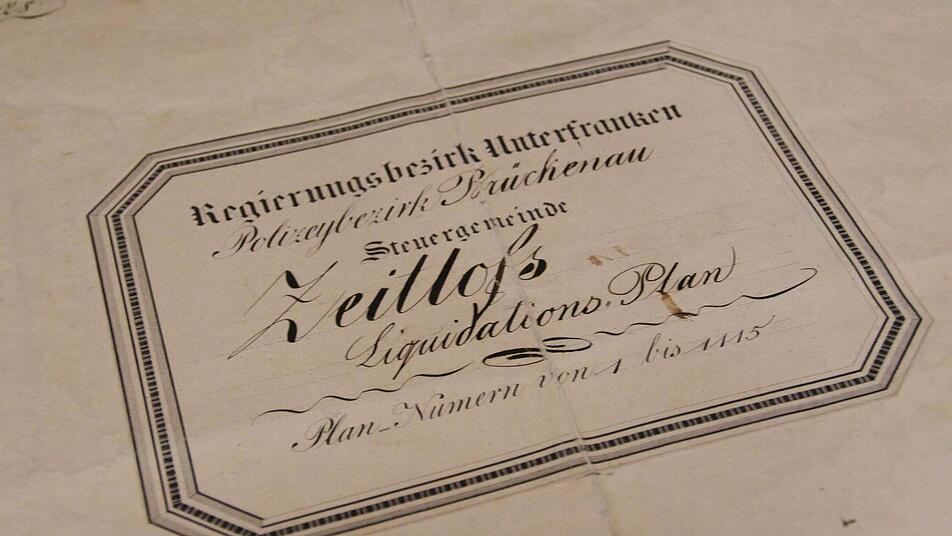 25
Regierungsbezirk Unterfranken
Polizeybezirk Brückenau
Steuergemeinde
Zeitlofs
Liquidations-Plan
Plan-Numern von 1 bis 1115